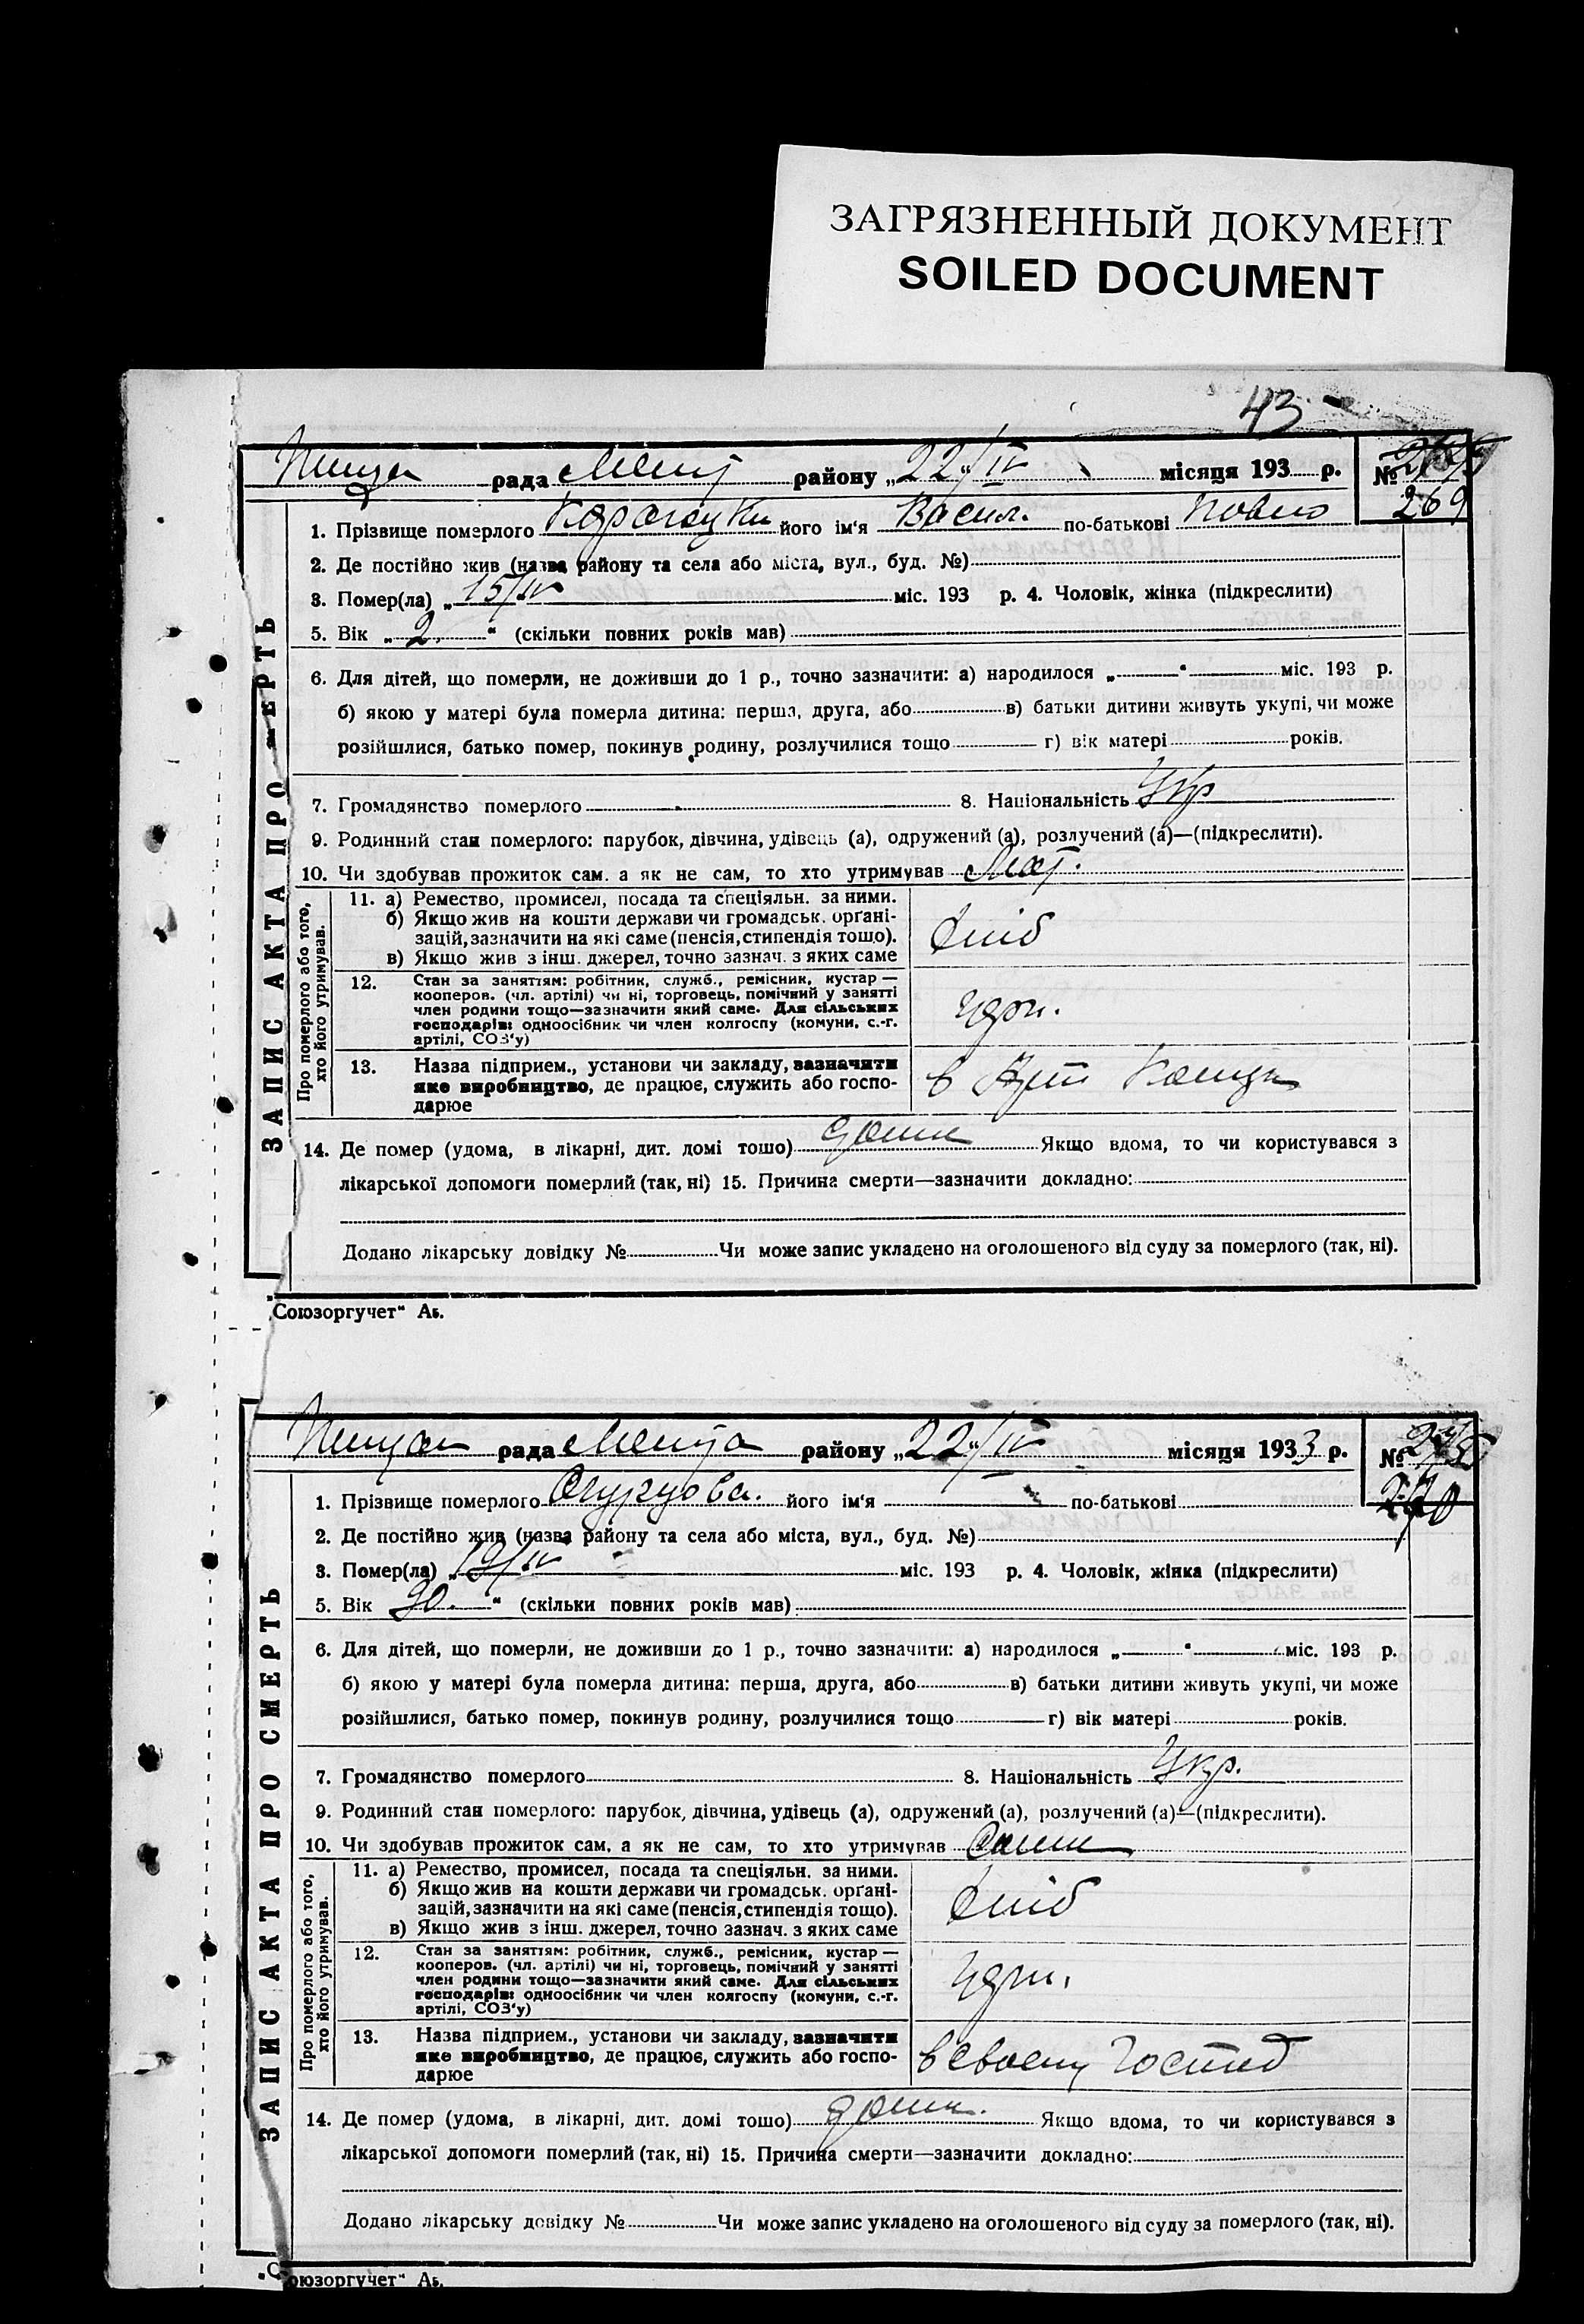 ЗАГРЯЗНЕННЫЙ ДОКУМЕНТ
SOILED DOCUMENT
43
рада району „22"/IV місяця 193 р. №
269
1. Прізвище померлого його ім'я Васил. по-батькові
2. Де постійно жив (назва району та села або міста, вул., буд. №)
3. Помер(ла) „15/IV міс. 193 р. 4. Чоловік, жінка (підкреслити)
5. Вік „2." (скільки повних років мав)
6. Для дітей, що померли, не доживши до 1 р., точно зазначити: а) народилося „ " міс. 193 р.
б) якою у матері була померла дитина: перша, друга, або в) батьки дитини живуть укупі, чи може
розійшлися, батько помер, покинув родину, розлучилися тощо г) вік матері років.
7. Громадянство померлого 8. Національність Укр
9. Родинний стан померлого: парубок, дівчина, удівець (а), одружений (а), розлучений (а)—(підкреслити).
10. Чи здобував прожиток сам. а як не сам, то хто утримував Мат.
ЗАПИС АКТА ПРО ЕРТЬ
Про померлого або того,
хто його утримував.
11. а) Ремество, промисел, посада та спеціяльн. за ними.
б) Якщо жив на кошти держави чи громадськ. орґані-
зацій, зазначити на які саме (пенсія, стипендія тощо).
в) Якщо жив з інш. джерел,точно зазнач. з яких саме
хліб
12. Стан за заняттям: робітник, служб., ремісник, кустар —
кооперов. (чл. артілі) чи ні, торговець, помічний у занятті
член родини тощо—зазначити який саме. Для сільських
господарів: одноосібник чи член колгоспу (комуни, с.-г.
артілі, СОЗ'у)
13. Назва підприєм., установи чи закладу, зазначити
яке виробництво, де працює, служить або госпо-
дарює
в
14. Де помер (удома, в лікарні, дит. домі тошо) дома Якщо вдома, то чи користувався з
лікарської допомоги померлий (так, ні) 15. Причина смерти—зазначити докладно:
Додано лікарську довідку № Чи може запис укладено на оголошеного від суду за померлого (так, ні).
„Союзоргучет" Аь.
рада району „22"/IV місяця 1933 р. №
270
1. Прізвище померлого Огурцова. його ім'я по-батькові
2. Де постійно жив (назва району та села або міста, вул., буд. №)
3. Помер(ла) „19/IV міс. 193 р. 4. Чоловік, жінка (підкреслити)
5. Вік " (скільки повних років мав)
6. Для дітей, що померли, не доживши до 1 р., точно зазначити: а) народилося „ " міс. 193 р.
б) якою у матері була померла дитина: перша, друга, або в) батьки дитини живуть укупі, чи може
розійшлися, батько помер, покинув родину, розлучилися тощо г) вік матері років.
7. Громадянство померлого 8. Національність Укр.
9. Родинний стан померлого: парубок, дівчина, удівець (а), одружений (а), розлучений (а)—(підкреслити).
10. Чи здобував прожиток сам. а як не сам, то хто утримував
ЗАПИС АКТА ПРО СМЕРТЬ
Про померлого або того,
хто його утримував.
11. а) Ремество, промисел, посада та спеціяльн. за ними.
б) Якщо жив на кошти держави чи громадськ. орґані-
зацій, зазначити на які саме (пенсія, стипендія тощо).
в) Якщо жив з інш. джерел, точно зазнач. з яких саме
хліб
12. Стан за заняттям: робітник, служб., ремісник, кустар —
кооперов. (чл. артілі) чи ні, торговець, помічний у занятті
член родини тощо—зазначити який саме. Для сільських
господарів: одноосібник чи член колгоспу (комуни, с.-г.
артілі, СОЗ'у)
13. Назва підприєм., установи чи закладу, зазначити
яке виробництво, де працює, служить або госпо-
дарює
в своему Господ
14. Де помер (удома, в лікарні, дит. домі тошо) дома. Якщо вдома, то чи користувався з
лікарської допомоги померлий (так, ні) 15. Причина смерти—зазначити докладно:
Додано лікарську довідку № Чи може запис укладено на оголошеного від суду за померлого (так, ні).
„Союзоргучет" Аь.